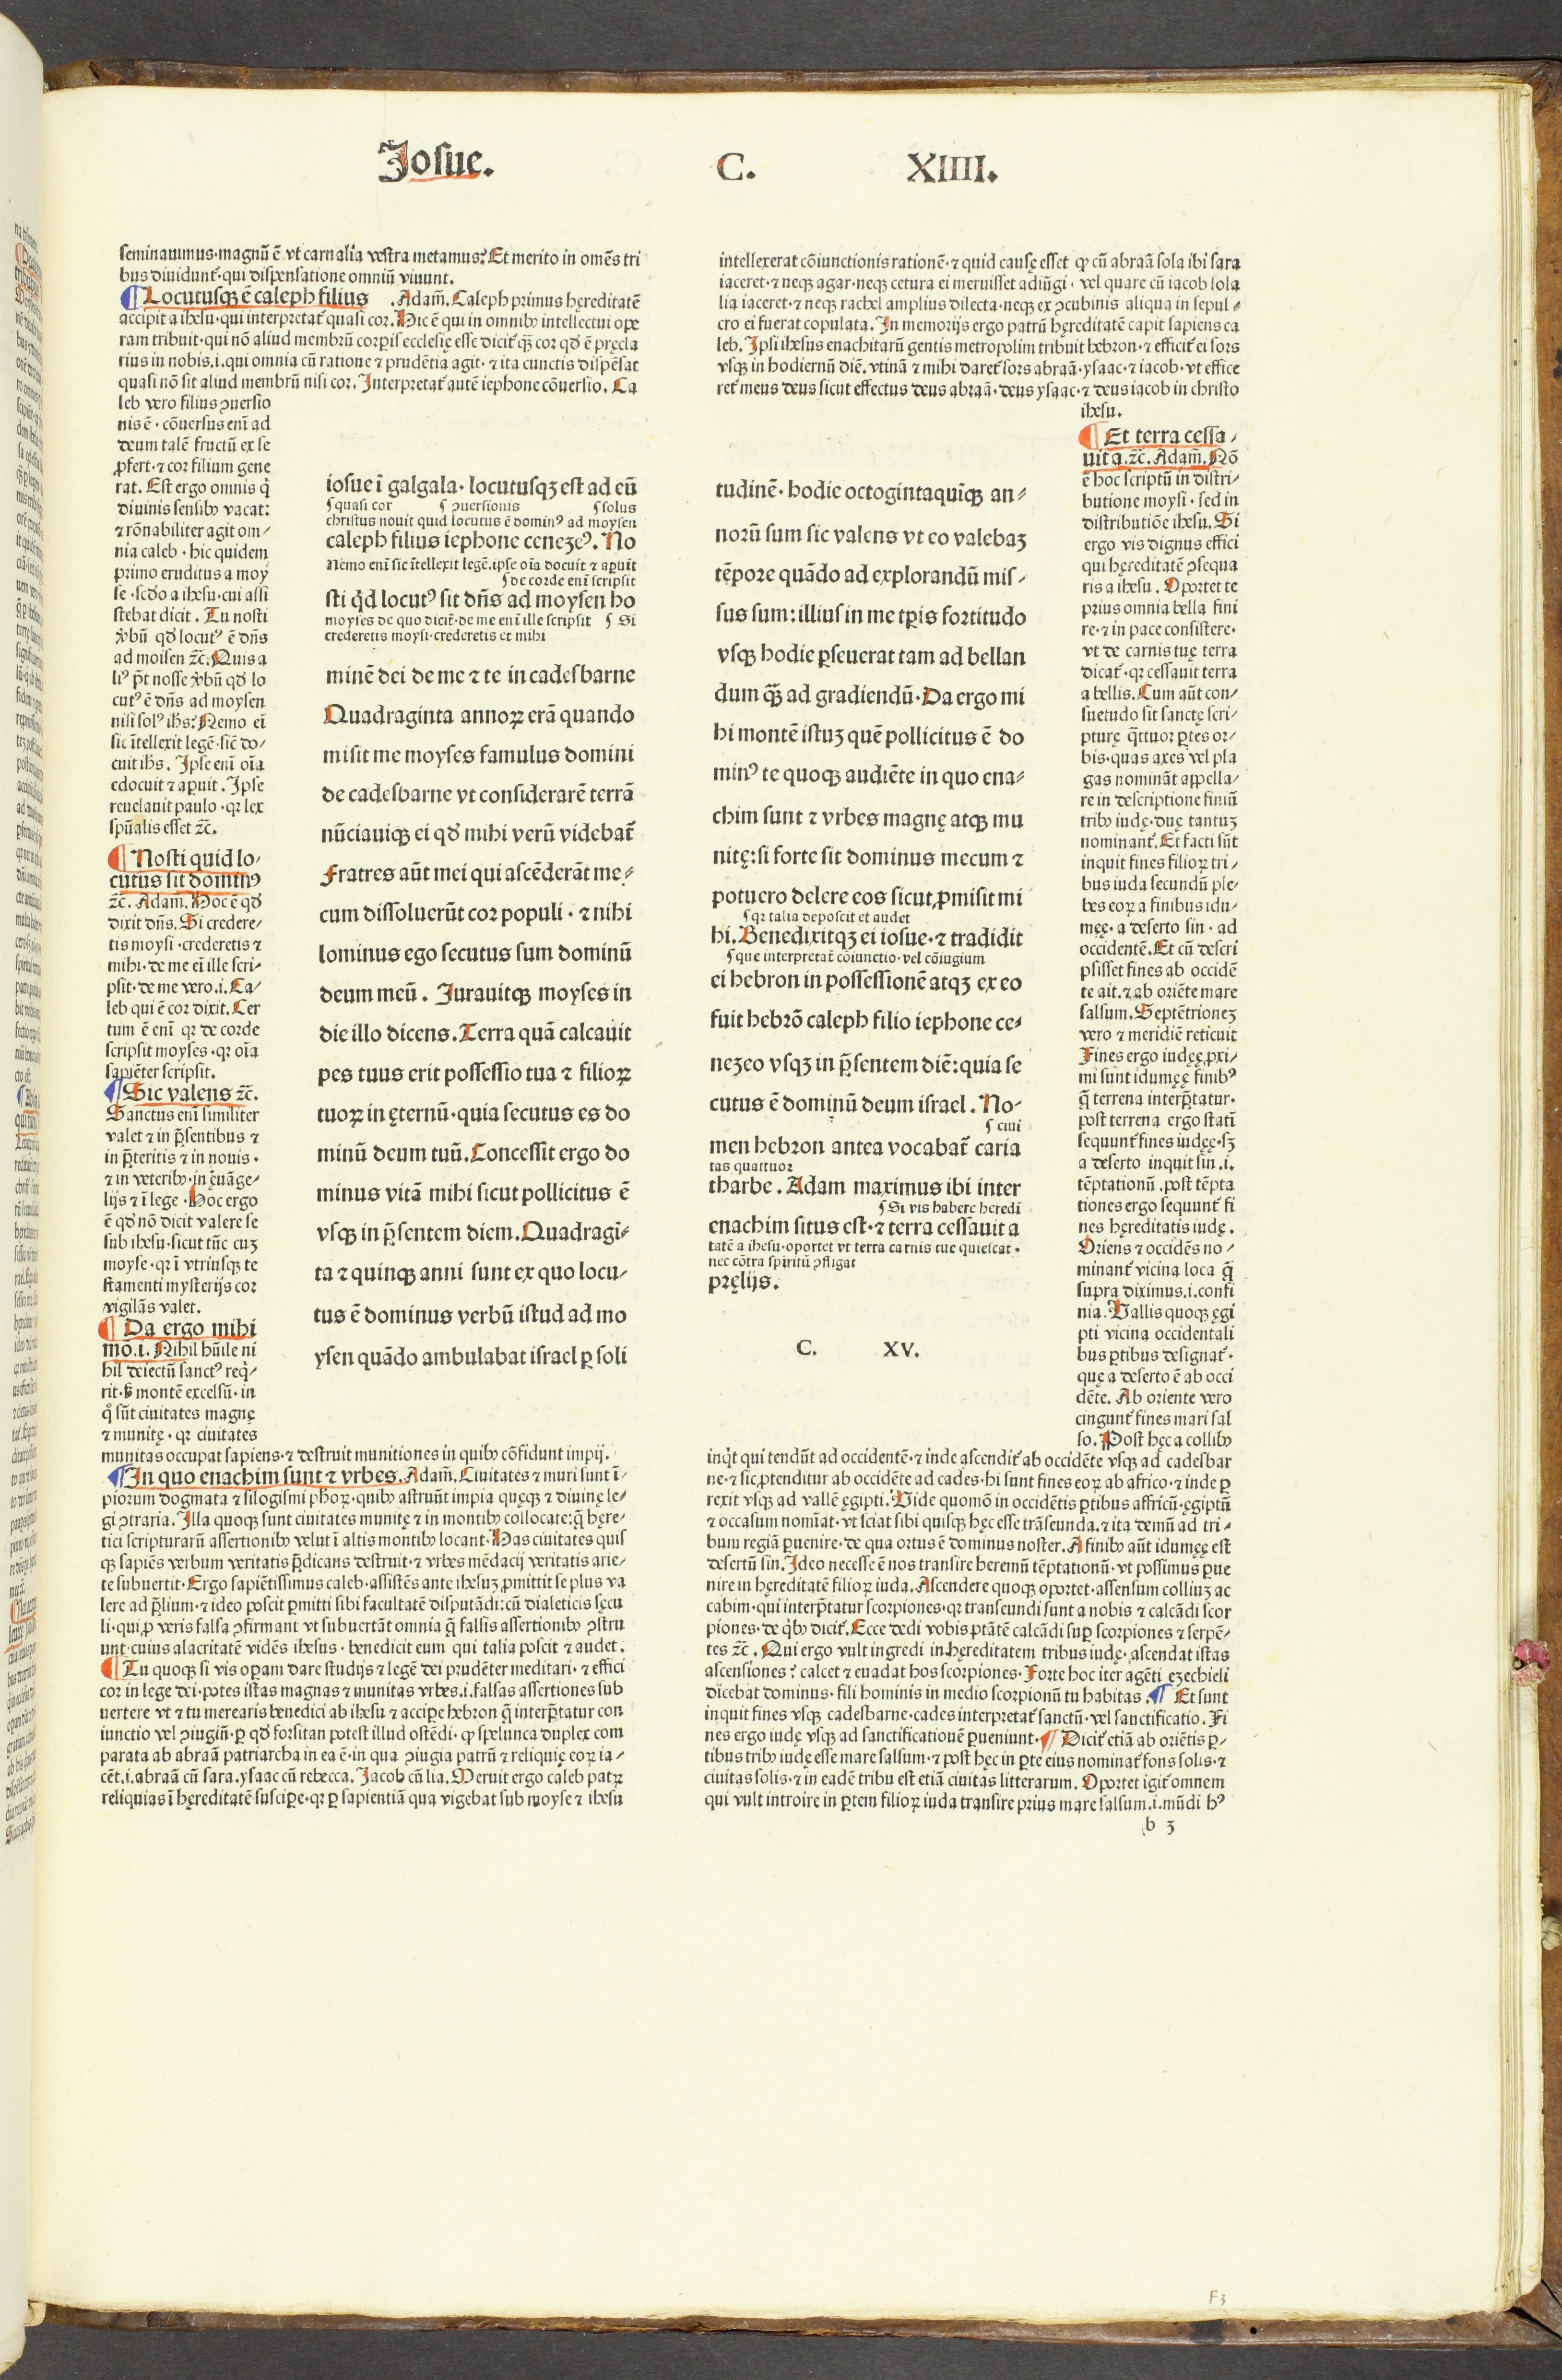 Iosue.
C. XIIII.
seminauimus·magnū ē vt carnalia vestra metamus? Et merito in omēs tri
bus diuidunt᷑·qui dispensatione omniū viuunt.
¶ Locutusqꝫ ē caleph filius .Adam̄. Caleph primus hęreditatē
accipit a ihesu·qui interpretat᷑ quasi cor. Hic ē qui in omnibꝰ intellectui ope
ram tribuit·qui nō aliud membrū corꝑis ecclesię esse dicit᷑ qꝫ̄ cor qđ ē pręcla
rius in nobis.i.qui omnia cū ratione ⁊ prudētia agit·⁊ ita cunctis dispēsat
quasi nō sit aliud membrū nisi cor. Interpretat᷑ autē iephone cōuersio. Ca
leb vero filius ꝯuersio
nis ē·cōuersus eni᷑ ad
deum talē fructū ex se
ꝓfert·⁊ cor filium gene
rat. Est ergo omnis q̇
diuinis sensibꝰ vacat:
⁊ rōnabiliter agit om⸗
nia caleb·hic quidem
primo eruditus a moy
se·scđo a ihesu·cui assi
stebat dicit. Tu nosti
v̓bū qđ locutꝰ ē dn̄s
ad moisen ⁊c̄. Quis a
liꝰ p̄t nosse v̓bū qđ lo
cutꝰ ē dn̄s ad moysen
nisi solꝰ ihs̄? Nemo ei᷑
sic ītellexit legē·sic̄ do⸗
cuit ihs̄. Ipse eni᷑ oi̅a
edocuit ⁊ aꝑuit. Ipse
reuelauit paulo·qꝛ lex
spūalis esset ⁊c̄.
¶ Nosti quid lo⸗
cutus sit dominꝰ
⁊c̄. Adam̄. Hoc ē qđ
dixit dn̄s. Si credere⸗
tis moysi·crederetis ⁊
mihi·de me ei᷑ ille scri⸗
psit·de me vero.i. Ca⸗
leb qui ē cor dixit. Cer
tum ē eni᷑ qꝛ de corde
scripsit moyses·qꝛ oi̅a
sapiēter scripsit.
¶ Sic valens ⁊c̄.
Sanctus eni᷑ similiter
valet ⁊ in p̄sentibus ⁊
in p̄teritis ⁊ in nouis·
⁊ in veteribꝰ·in ęuāge⸗
lijs ⁊ ī lege. Hoc ergo
ē qđ nō dicit valere se
sub ihesu·sicut tūc cuꝫ
moyse·qꝛ ī vtriusqꝫ te
stamenti mysterijs cor
vigilās valet.
¶ Da ergo mihi
mō.i. Nihil hūile ni
hil deiectū sanctꝰ req̇⸗
rit·ꝫ montē excelsū·in
q̊ sūt ciuitates magnę
⁊ munitę·qꝛ ciuitates
munitas occupat sapiens·⁊ destruit munitiones in quibꝰ cōfidunt impij.
¶ In quo enachim sunt ⁊ vrbes. Adam̄. Ciuitates ⁊ muri sunt ī⸗
piorum dogmata ⁊ silogismi ph̄oꝝ·quibꝰ astruūt impia quęqꝫ ⁊ diuinę le⸗
gi ꝯtraria. Illa quoqꝫ sunt ciuitates munitę ⁊ in montibꝰ collocate:q̄ hęre⸗
tici scripturarū assertionibꝰ velut ī altis montibꝰ locant. Has ciuitates quis
qꝫ sapiēs verbum veritatis p̄dicans destruit·⁊ vrbes mēdacij veritatis arie⸗
te subuertit. Ergo sapiētissimus caleb·assistēs ante ihesuꝫ ꝓmittit se plus va
lere ad p̄lium·⁊ ideo poscit ꝑmitti sibi facultatē disputādi:cū dialeticis sęcu
li·qui ꝓ veris falsa ꝯfirmant vt subuertāt omnia q̄ falsis assertionibꝰ ꝯstru
unt·cuius alacritatē vidēs ihesus·benedicit eum qui talia poscit ⁊ audet.
¶ Tu quoqꝫ si vis oꝑam dare studijs ⁊ legē dei prudēter meditari·⁊ effici
cor in lege dei·potes istas magnas ⁊ munitas vrbes.i.falsas assertiones sub
uertere vt ⁊ tu merearis benedici ab ihesu ⁊ acciꝑe hebron q̄ interp̄tatur con
iunctio vel ꝯiugiū·ꝑ qđ forsitan potest illud ostēdi·ꝙ spelunca duplex com
parata ab abraā patriarcha in ea ē·in qua ꝯiugia patrū ⁊ reliquię eoꝝ ia⸗
cēt.i.abraā cū sara.ysaac cū rebecca. Jacob cū lia. Meruit ergo caleb patꝝ
reliquias ī hęreditatē susciꝑe·qꝛ ꝑ sapientiā qua vigebat sub moyse ⁊ ihesu
iosue ī galgala·locutusqꝫ est ad eū
¶ quasi cor ¶ ꝯuersionis ¶ solus
christus nouit quid locutus ē dominꝰ ad moysen
caleph filius iephone cenezeꝰ. No
Nemo eni᷑ sic ītellexit legē.ipse oi̅a docuit ⁊ aꝑuit
¶ de corde eni᷑ scripsit
sti q̇d locutꝰ sit dn̄s ad moysen ho
moyses de quo dicit᷑·de me eni᷑ ille scripsit ¶ Si
crederetis moysi·crederetis et mihi
minē dei de me ⁊ te in cadesbarne
Quadraginta annoꝝ erā quando
misit me moyses famulus domini
de cadesbarne vt considerarē terrā
nūciauiqꝫ ei qđ mihi verū videbat᷑
Fratres aūt mei qui ascēderāt me⸗
cum dissoluerūt cor populi·⁊ nihi
lominus ego secutus sum dominū
deum meū. Iurauitqꝫ moyses in
die illo dicens. Terra quā calcauit
pes tuus erit possessio tua ⁊ filioꝝ
tuoꝝ in ęternū·quia secutus es do
minū deum tuū. Concessit ergo do
minus vitā mihi sicut pollicitus ē
vsqꝫ in p̄sentem diem. Quadragi⸗
ta ⁊ quinqꝫ anni sunt ex quo locu⸗
tus ē dominus verbū istud ad mo
ysen quādo ambulabat israel ꝑ soli
intellexerat cōiunctionis rationē·⁊ quid causę esset ꝙ cū abraā sola ibi sara
iaceret·⁊ neqꝫ agar·neqꝫ cetura ei meruisset adiūgi·vel quare cū iacob sola
lia iaceret·⁊ neqꝫ rachel amplius dilecta·neqꝫ ex ꝯcubinis aliqua in sepul⸗
cro ei fuerat copulata. In memorijs ergo patrū hęreditatē capit sapiens ca
leb. Ipsi ihesus enachitarū gentis metropolim tribuit hebron·⁊ efficit᷑ ei sors
vsqꝫ in hodiernū diē. vtinā ⁊ mihi daret᷑ sors abraā·ysaac·⁊ iacob·vt effice
ret᷑ meus deus sicut effectus deus abraā·deus ysaac·⁊ deus iacob in christo
ihesu.
tudinē·hodie octogintaquīqꝫ an⸗
norū sum sic valens vt eo valebaꝫ
tēpore quādo ad explorandū mis⸗
sus sum:illius in me tꝑis fortitudo
vsqꝫ hodie ꝑseuerat tam ad bellan
dum qꝫ̄ ad gradiendū. Da ergo mi
hi montē istuꝫ quē pollicitus ē do
minꝰ te quoqꝫ audiēte in quo ena⸗
chim sunt ⁊ vrbes magnę atqꝫ mu
nitę:si forte sit dominus mecum ⁊
potuero delere eos sicut ꝓmisit mi
¶ qꝛ talia deposcit et audet
hi. Benedixitqꝫ ei iosue·⁊ tradidit
¶ que interpretat᷑ cōiunctio·vel cōiugium
ei hebron in possessionē atqꝫ ex eo
fuit hebrō caleph filio iephone ce⸗
nezeo vsqꝫ in p̄sentem diē:quia se
cutus ē dominū deum israel. No⸗
¶ ciui
men hebron antea vocabat᷑ caria
tas quattuor
tharbe. Adam maximus ibi inter
¶ Si vis habere heredi
enachim situs est·⁊ terra cessauit a
tatē a ihesu·oportet vt terra carnis tue quiescat·
nec cōtra spiritū ꝯfligat
pręlijs.
C. XV.
¶ Et terra cessa⸗
uit a.⁊c̄. Adam̄. Nō
ē hoc scriptū in distri⸗
butione moysi·sed in
distributiōe ihesu. Si
ergo vis dignus effici
qui hęreditatē ꝯsequa
ris a ihesu. Oportet te
prius omnia bella fini
re·⁊ in pace consistere·
vt de carnis tuę terra
dicat᷑·qꝛ cessauit terra
a bellis. Cum aūt con⸗
suetudo sit sanctę scri⸗
pturę q̄ttuor ꝑtes or⸗
bis·quas axes vel pla
gas nominā̄t appella⸗
re in descriptione finiū
tribꝰ iudę·duę tantuꝫ
nominant᷑. Et facti sūt
inquit fines filioꝝ tri⸗
bus iuda secundū ple⸗
bes eoꝝ a finibus idu⸗
męę·a deserto sin·ad
occidentē. Et cū descri
psisset fines ab occidē
te ait.⁊ ab oriēte mare
salsum. Septētrioneꝫ
vero ⁊ meridiē reticuit
Fines ergo iudęę ꝓxi⸗
mi sunt idumęę finibꝰ
q̄ terrena interp̄tatur·
post terrena ergo stati᷑
sequunt᷑ fines iudęę·sꝫ
a deserto inquit sin.i.
tēptationū.post tēpta
tiones ergo sequunt᷑ fi
nes hęreditatis iudę.
Oriens ⁊ occidēs no⸗
minant᷑ vicina loca q̄
supra diximus.i.confi
nia. Vallis quoqꝫ ęgi
pti vicina occidentali
bus ꝑtibus designat᷑·
quę a deserto ē ab occi
dēte. Ab oriente vero
cingunt᷑ fines mari sal
so. Post hęc a collibꝰ
inq̇t qui tendūt ad occidentē·⁊ inde ascendit᷑ ab occidēte vsqꝫ ad cadesbar
ne·⁊ sic ꝓtenditur ab occidēte ad cades·hi sunt fines eoꝝ ab africo·⁊ inde ꝑ
rexit vsqꝫ ad vallē ęgipti. Vide quomō in occidētis ꝑtibus affricū·ęgiptū
⁊ occasum nomīat·vt sciat sibi quisqꝫ hęc esse trāseunda.⁊ ita demū ad tri⸗
bum regiā ꝑuenire·de qua ortus ē dominus noster. A finibꝰ aūt idumęę est
desertū sin. Ideo necesse ē nos transire heremū tēptationū·vt possimus ꝑue
nire in hęreditatē filioꝝ iuda. Ascendere quoqꝫ oportet·assensum colliuꝫ ac
cabim·qui interp̄tatur scorpiones·qꝛ transeundi sunt a nobis ⁊ calcādi scor
piones·de q̇bꝰ dicit᷑. Ecce dedi vobis ptātē calcādi suꝑ scorpiones ⁊ serpē⸗
tes ⁊c̄. Qui ergo vult ingredi in hęreditatem tribus iudę·ascendat istas
ascensiones? calcet ⁊ euadat hos scorpiones. Forte hoc iter agēti ezechieli
dicebat dominus·fili hominis in medio scorpionū tu habitas. ¶ Et sunt
inquit fines vsqꝫ cadesbarne·cades interpretat᷑ sanctū·vel sanctificatio. Fi
nes ergo iudę vsqꝫ ad sanctificationē ꝑueniunt. ¶ Dicit᷑ etiā ab oriētis ꝑ⸗
tibus tribꝰ iudę esse mare salsum·⁊ post hęc in ꝑte eius nominat᷑ fons solis·⁊
ciuitas solis·⁊ in eadē tribu est etiā ciuitas litterarum. Oportet igit᷑ omnem
qui vult introire in ꝑtem filioꝝ iuda transire prius mare salsum.i.mūdi hꝰ
b 3
F3